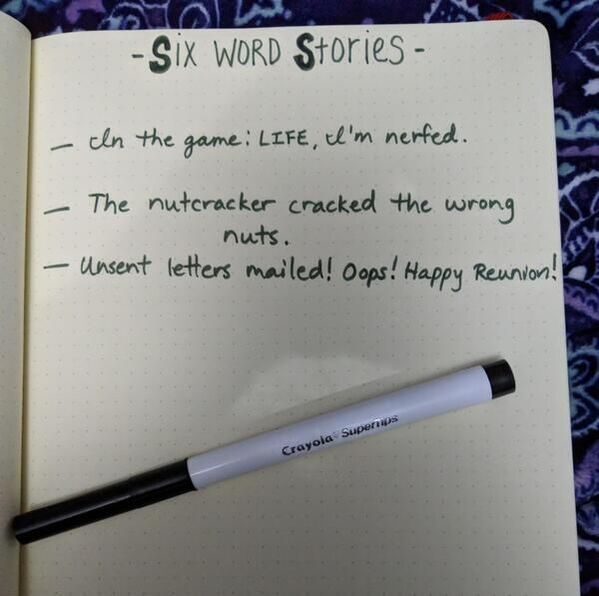 -Six WORD Stories-
— In the game: LIFE, I'm nerfed.
— The nutcracker cracked the wrong
nuts.
— Unsent letters mailed! Oops! Happy Reunion!
Crayola® Supertips